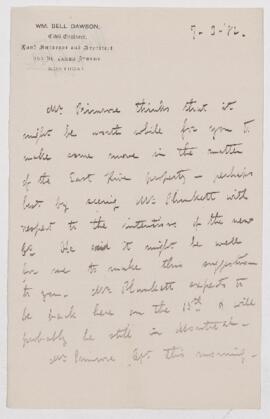 WM. BELL DAWSON,
Civil Engineer,
Land Surveyor and Architect
James Street
MONTREAL
Mr. Primrose thinks that it
might be worth while for you to
make some move in the matter
of the East River property – perhaps
best by seeing Mr. Plunkett with
respect to the intentions of the new
Co. He said it might be well
for me to make this suggestion
to you. Mr. Plunkett expects to
be back here on the 15th & will
probably be still in Montreal.
Mr. Primrose left this morning.